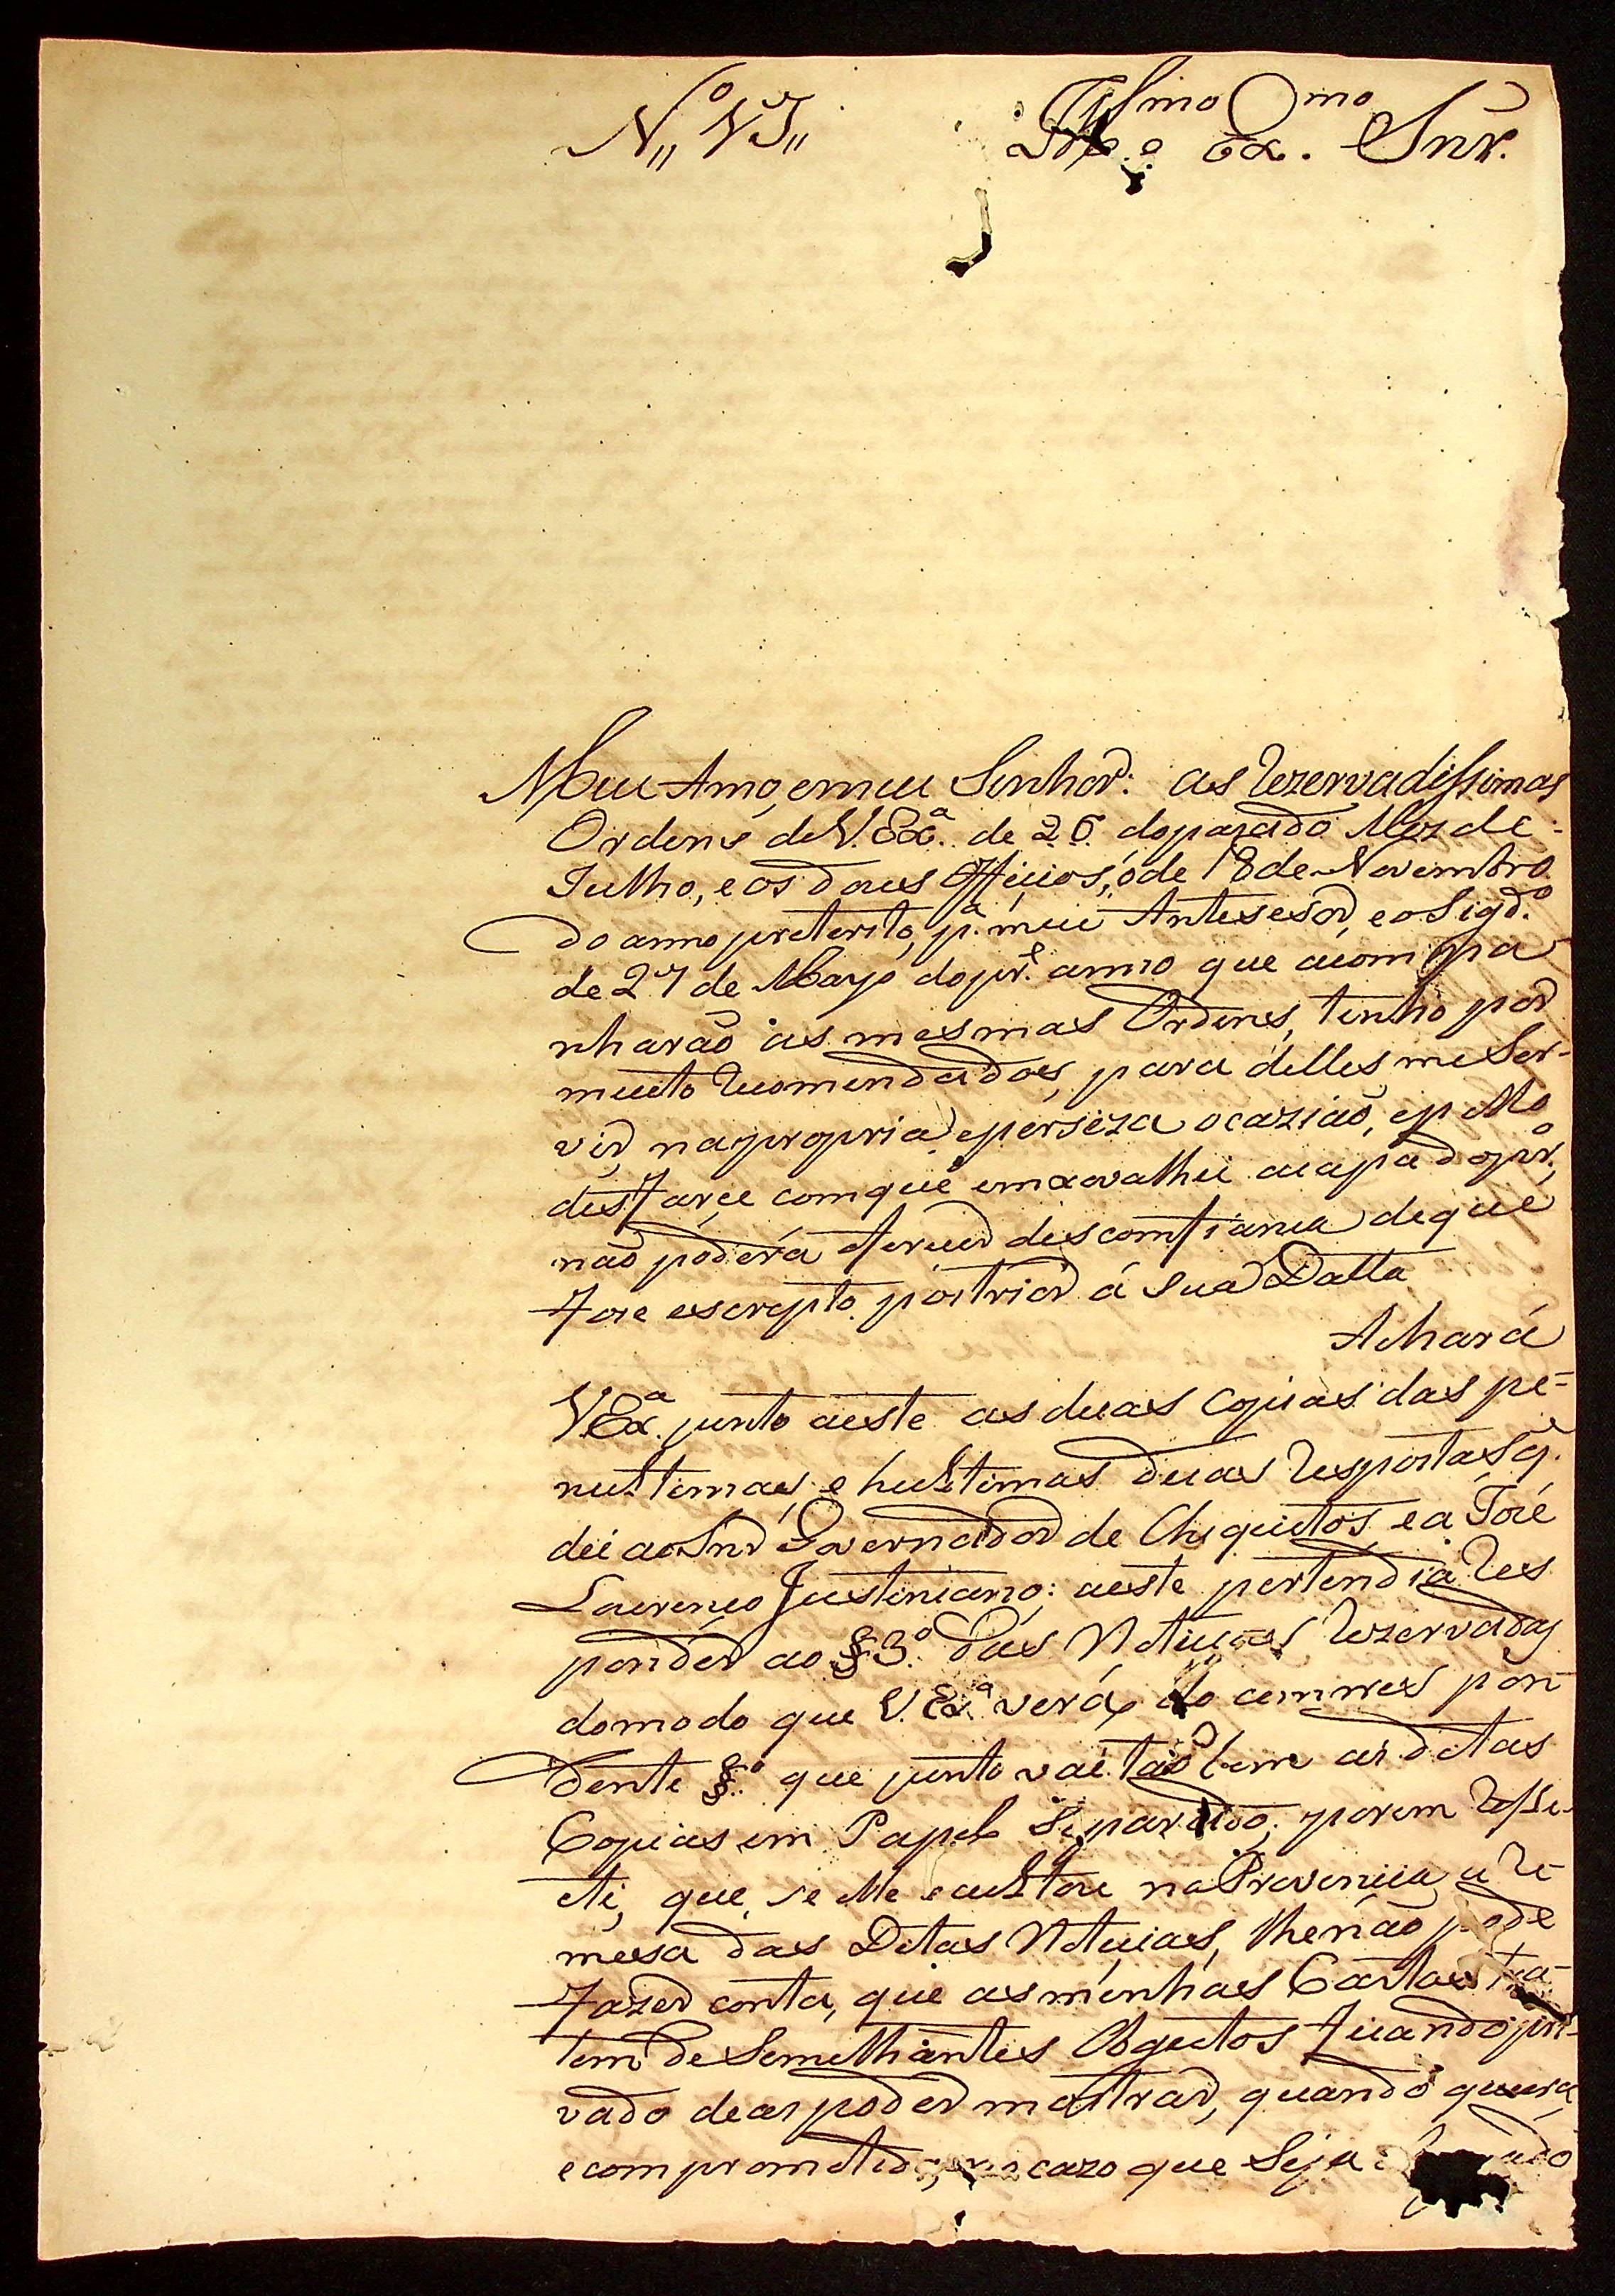 Illmo e Exmo Snr.
Meu Amo, e meu Senhor: as rezervadissimas
Ordens de V. Exa. de 26. do pasado Mez de
Julho, e os dous Officios, o de 18 de Novembro
do anno preterito, pa. meu Antesesor, e o Sigdo.
de 27 de Março do pre. anno que acompa
nharaõ as mesmas Ordens, tenho por
muito recomendados, para delles me Ser-
vir na propria, e perciza ocaziaõ, e pello
desfarçe com que emxovalhei a capa do pro.,
naõ poderá aver descomfiança de que
fose escripto postrior á sua Datta
Achará
V. Exa. junto a este as duas Copias das pe=
nultimas, e hultimas duas respostas q.
dei ao Snr Governador de Chiquitos, e a José
Lourenço Justiniano: a este pertendia res
ponder ao § 3o. das Noticias rezervadas
do modo que V. Exa. verá, do comrres pon
dente §o. que junto vai taõ bem as ditas
Copias em Papel Separado; porem refle-
ti, que, se lhe e custou na Provincia a re-
mesa das Ditas Noticias, lhe naõ pode
fazer conta, que as minhas Cartas tra-
tem de Semelhantes Obgectos ficando pri-
vado de as poder mostrar, quando queira,
e comprometido, em cazo que Seja